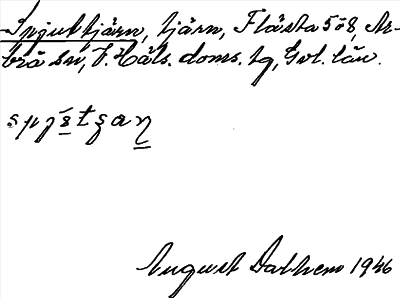 Spjuttjärn, tjärn, Flästa 5 o 8, Ar-
brå sn, V. Häls. doms. tg, Gvl. län.
August Dahlhem 1946